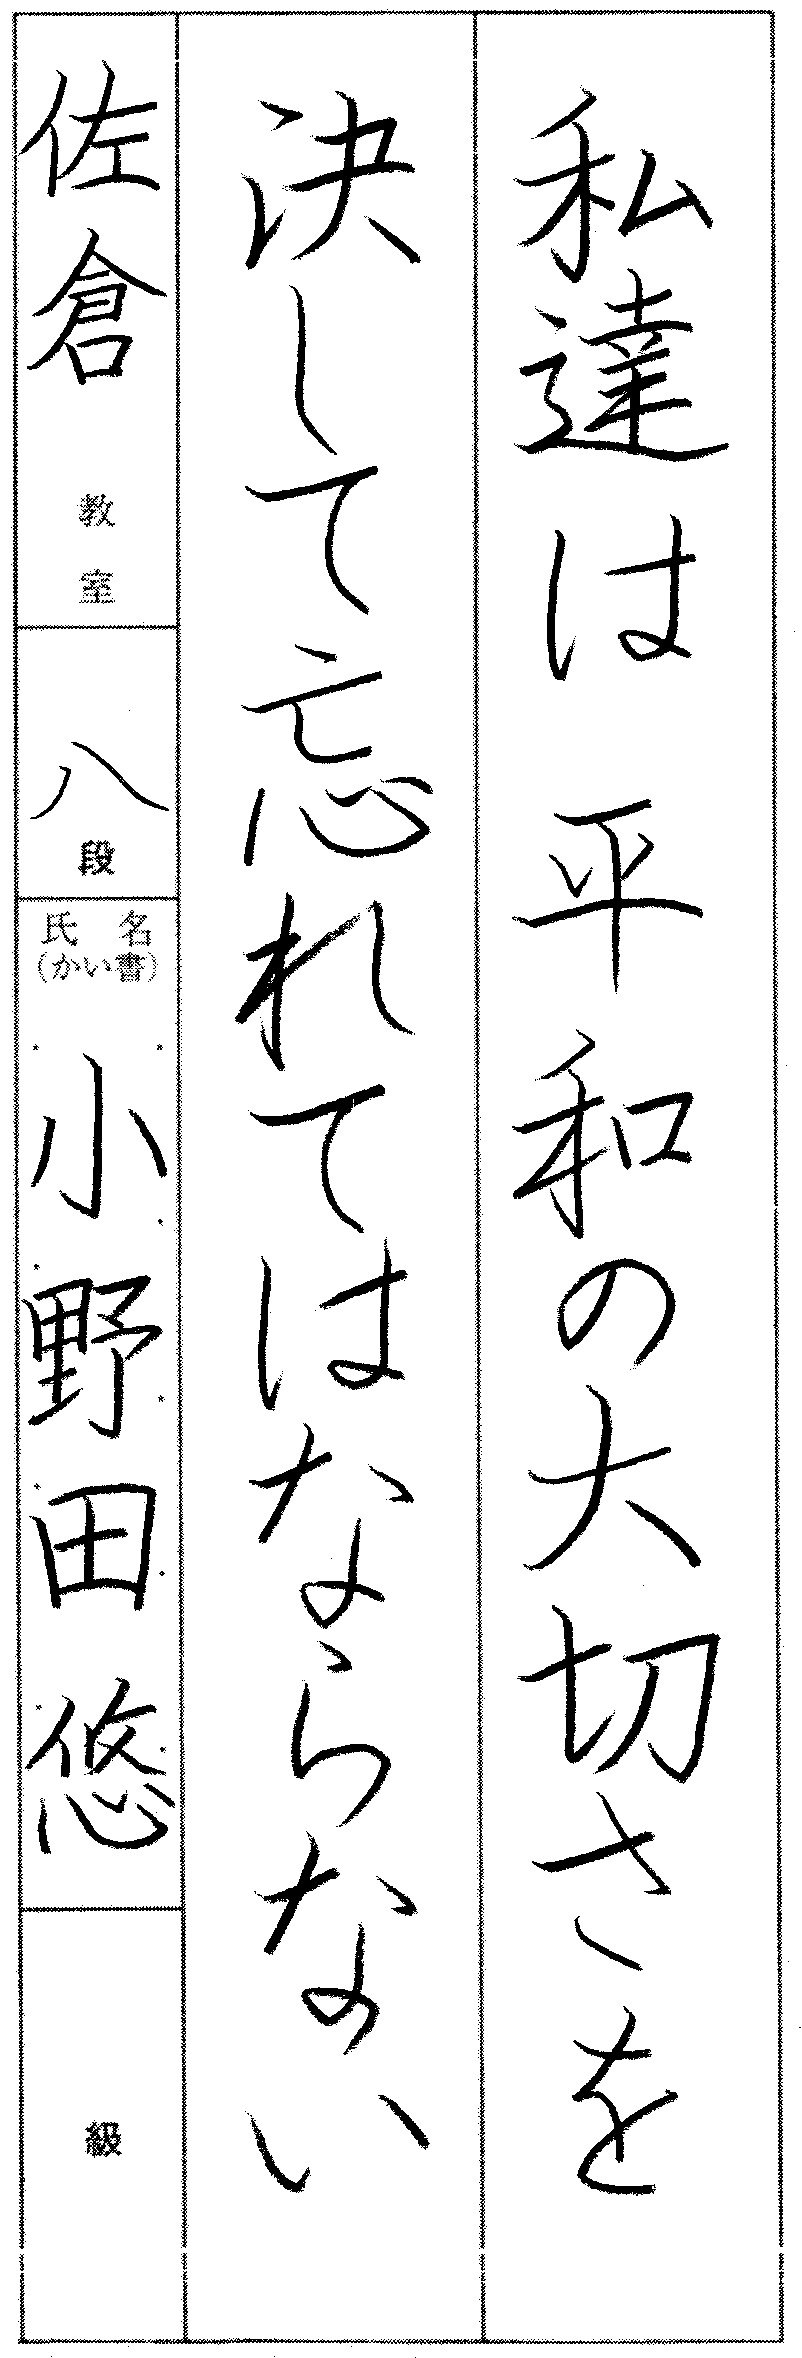 私達は平和の大切さを
決して忘れてはならない
佐倉教室
八段
氏名
(かい書)
小野田悠
級